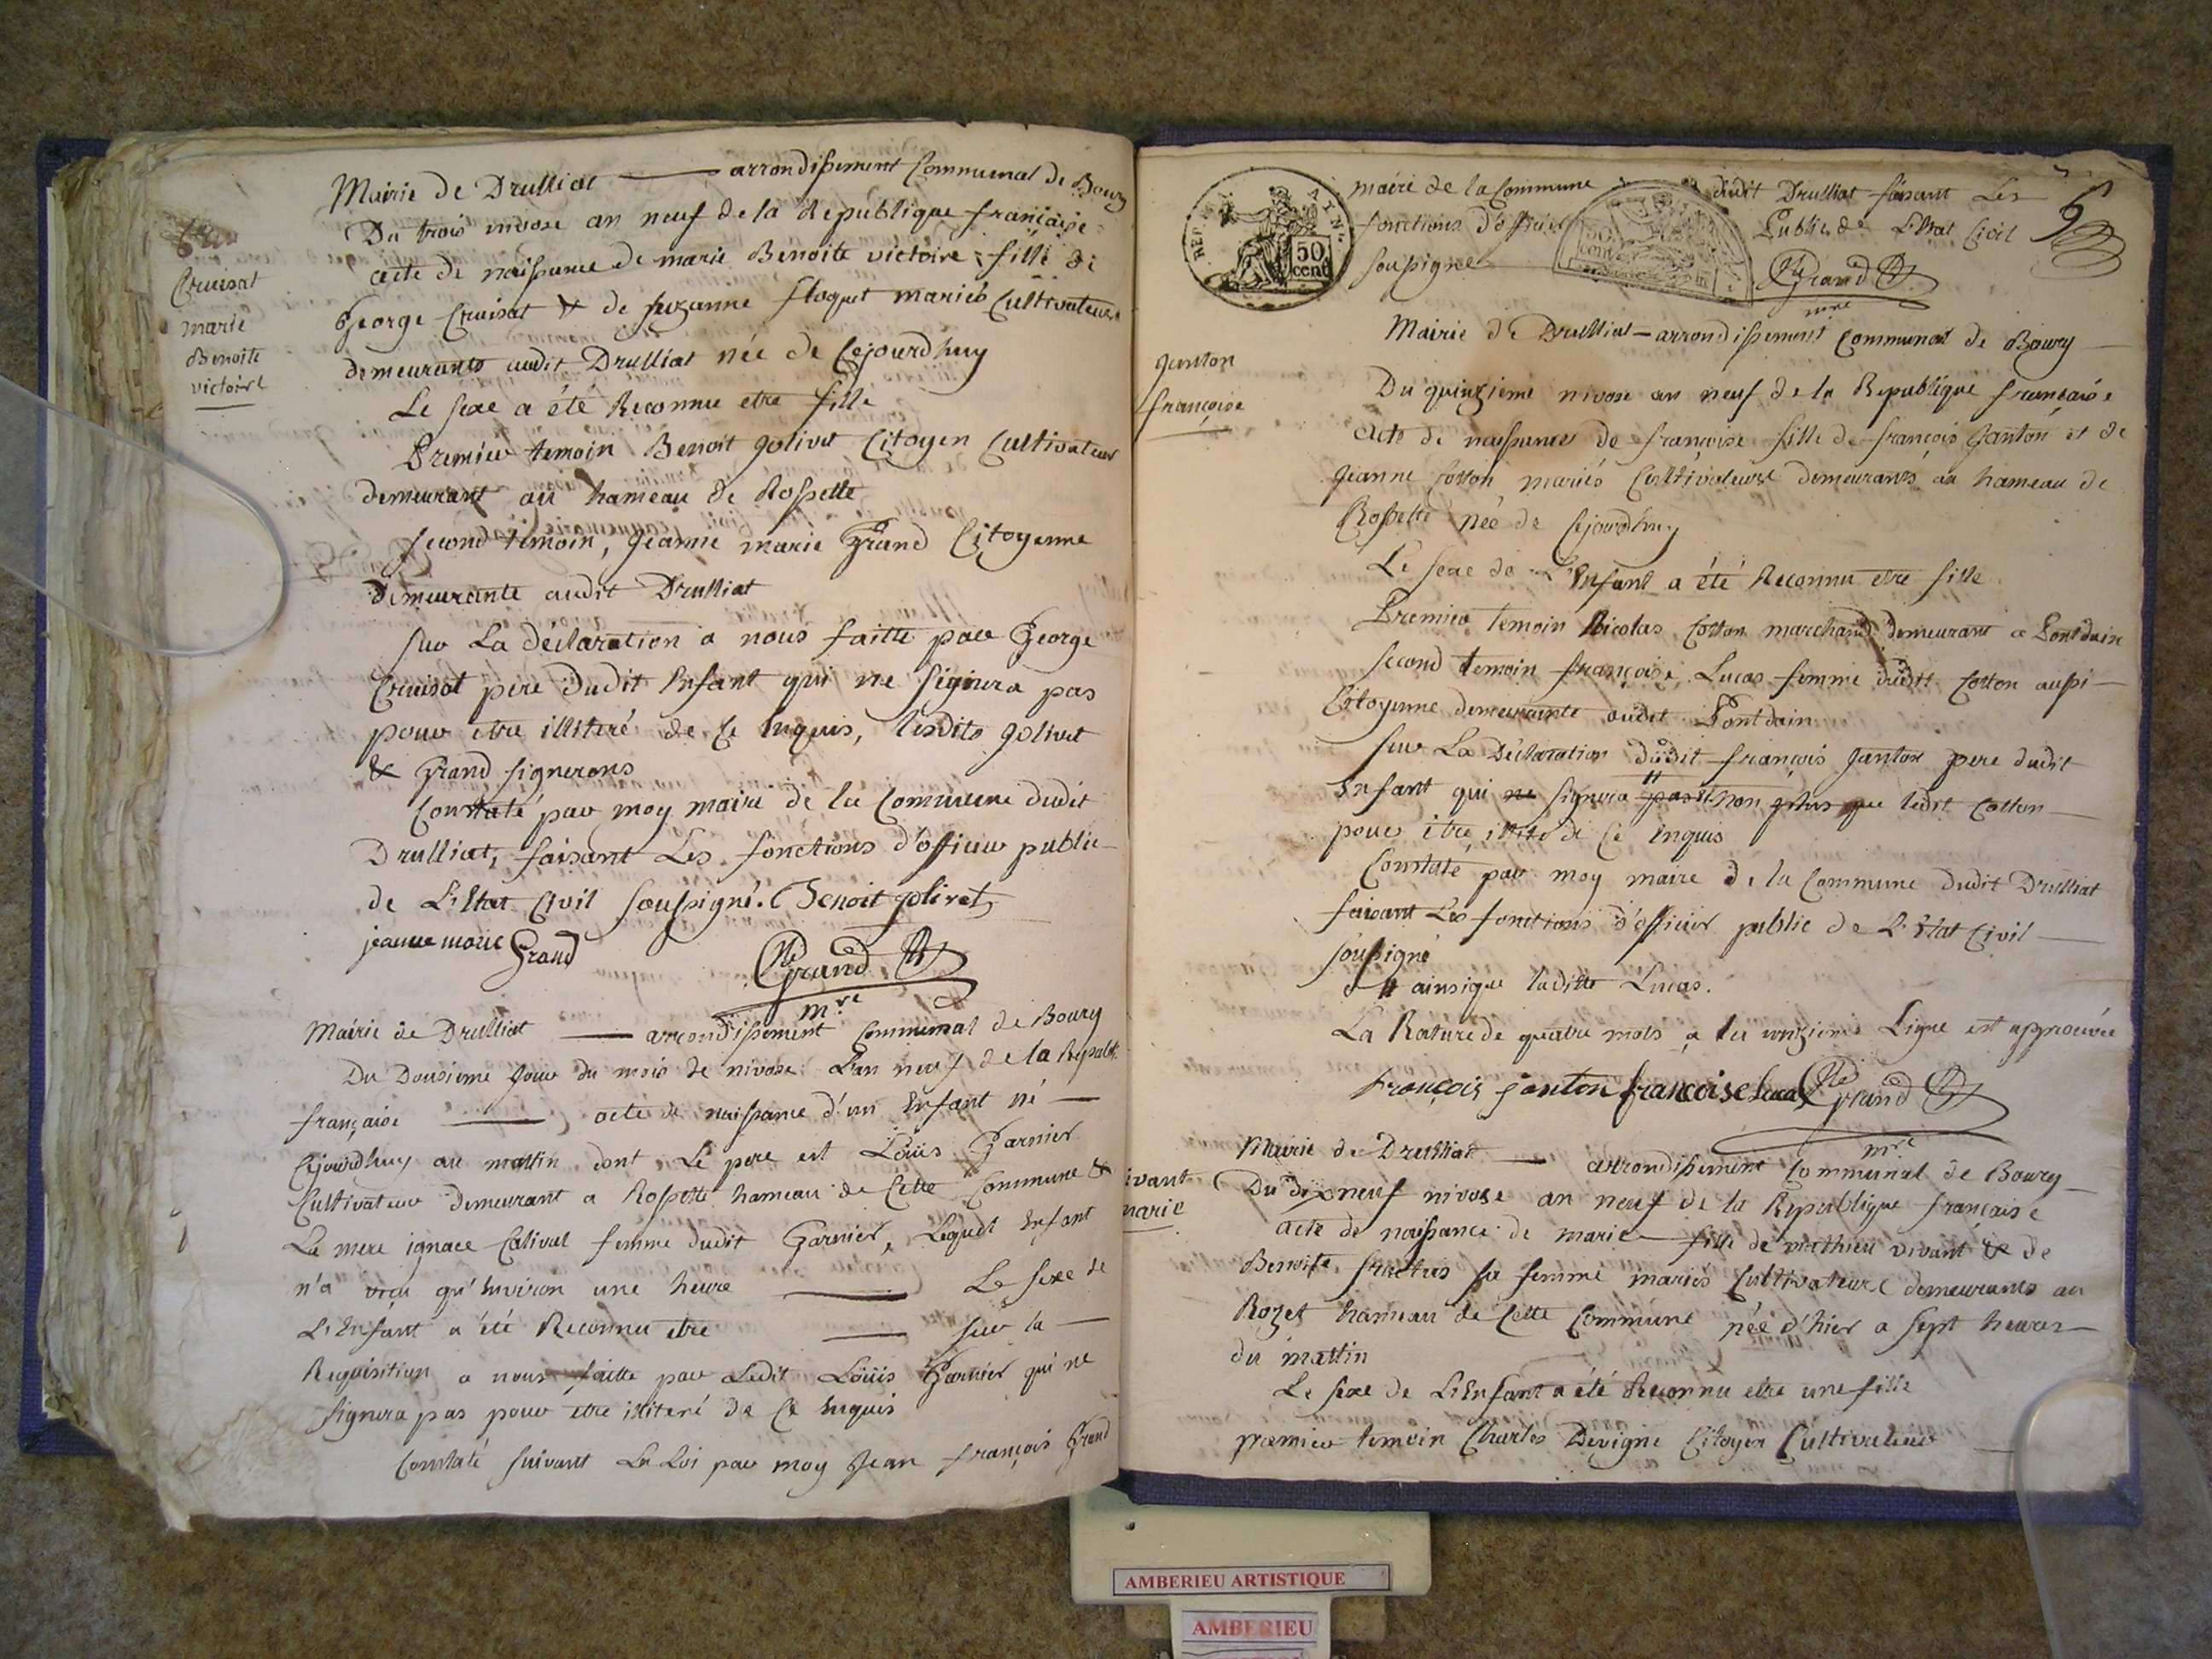 Mairie de Drulliat — arrondissement Communal de Bourg
Du trois nivose an neuf de la Republique française
acte de naissance de marie Benoite victoire fille de
George Cruisat & de suzanne floquet mariés Cultivateurs
demeurants audit Drulliat née de Cejourdhuy
Le sexe a été Reconnu etre fille
Premier temoin Benoit golivet Citoyen Cultivateur
demeurant au hameau de Rossette
second temoin, jeanne marie Grand Citoyenne
demeurante audit Drulliat
sur La déclaration a nous faitte par George
Cruisat pere dudit Enfant qui ne signera pas
pour etre illiteré de Ce Enquis, lesdits golivet
& Grand signerons
Constaté par moy maire de la Commune dudit
Drulliat, faisant Les fonctions d'officier public
de L'Etat Civil soussigné. Benoit golivet
jeanne marie Grand
Grand
mre
Cruisat
marie
Benoite
victoire
Mairie de Drulliat — arrondissement Communal de Bourg
Du Dousieme jour du mois de nivose L'an neuf de la Republ.
française — acte de naissance d'un Enfant né —
Cejourdhuy au mattin dont Le pere est Loüis Garnier
Cultivateur demeurant a Rossette hameau de Cette Commune &
La mere ignace Calivat femme dudit Garnier, Lequel Enfant
n'a vecu qu'Environ une heure — Le sexe de
L'Enfant a été Reconnu etre — sur la —
Requisition a nous faitte par Ledit Loüis Garnier qui ne
signera pas pour etre illiteré de Ce Enquis
Constaté suivant La Loi par moy Jean françois Grand
REP. FRA. AYN
50
cent
maire de la Commune dudit Drulliat faisant Les
fonctions d'officier Public de L'Etat Civil
soussigné
Grand
mre
Mairie de Drulliat — arrondissement Communal de Bourg
janton
françoise
Du quinzieme nivose an neuf de la Republique française
acte de naissance de françoise fille de françois Janton et de
jeanne Cotton mariés Cultivateurs demeurants au hameau de
Rossette née de Cejourdhuy
Le sexe de L'Enfant a été Reconnu etre fille
Premier temoin Nicolas Cotton marchand demeurant a Pontdain
second temoin françoise Lucas femme dudit Cotton aussi
Citoyenne demeurante audit Pontdain
sur La Déclaration dudit françois Janton pere dudit
Enfant qui ne signera pas " non plus que ledit Cotton
pour etre illité de Ce Enquis
Constaté par moy maire de la Commune dudit Drulliat
faisant Les fonctions d'officier public de L'Etat Civil
soussigné
" ainsique laditte Lucas.
La Rature de quatre mots a la onzieme Ligne est approuvée
françois janton francoise lucas Grand
mre
Mairie de Drulliat — arrondissement Communal de Bourg
vivant
marie
Du dixneuf nivose an neuf de la Republique française
acte de naissance de marie fille de mathieu vivant & de
Benoite sa femme mariés Cultivateurs demeurants au
Rozet hameau de Cette Commune née d'hier a sept heures
du mattin
Le sexe de L'Enfant a été Reconnu etre une fille
premier temoin Charles Devigne Citoyen Cultivateur
AMBERIEU ARTISTIQUE
AMBERIEU